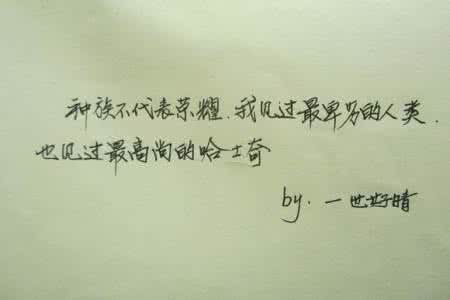 种族不代表荣耀.我见过最卑劣的人类.
也见过最高尚的哈士奇
by.一世好晴